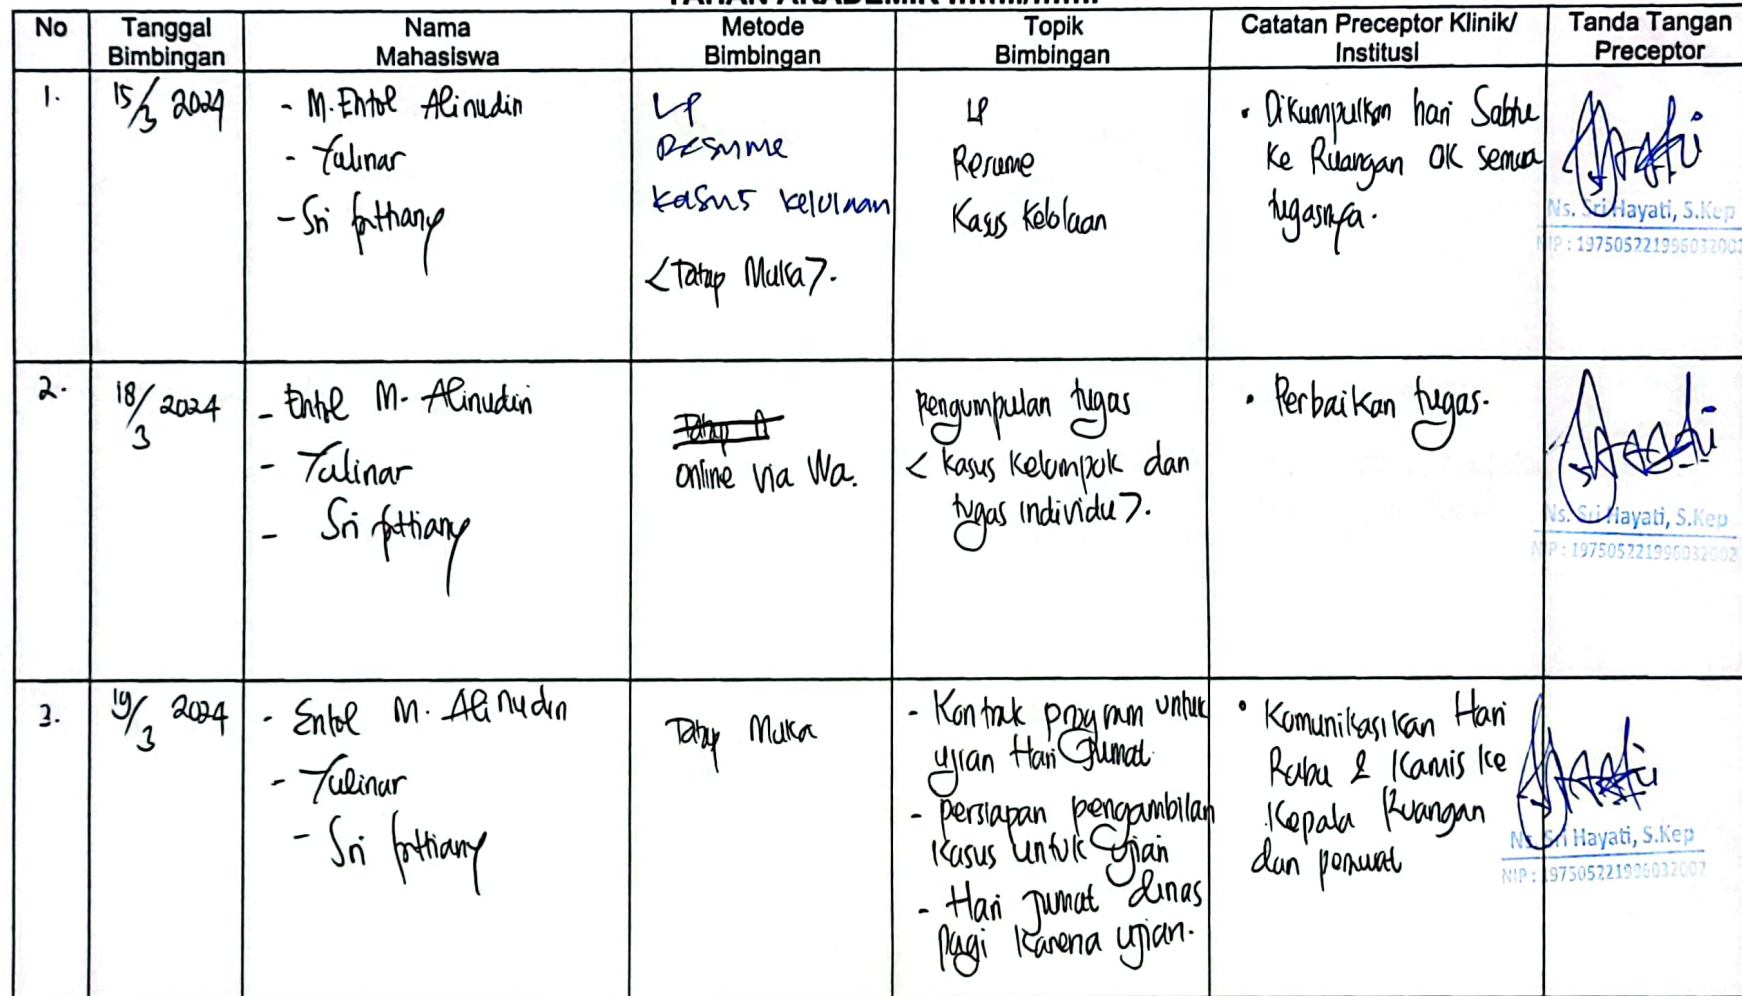 No
Tanggal
Bimbingan
Nama
Mahasiswa
Metode
Bimbingan
Topik
Bimbingan
Catatan Preceptor Klinik/
Institusi
Tanda Tangan
Preceptor
1.
15/3 2024
- M. Entol Alinudin
- Tulinar
- Sri fatthany
LP
Resume
Kasus Kelolaan
<Tatap Muka>.
LP
Resume
Kasus Kelolaan
• Dikumpulkan hari Sabtu
Ke Ruangan OK semua
tugasnya.
Ns. Sri Hayati, S.Kep
NIP : 197505221996032002
2.
18/3 2024
- Entol M. Alinudin
- Tulinar
- Sri fatthany
online via Wa.
Pengumpulan tugas
< Kasus Kelompok dan
tugas individu>.
• Perbaikan tugas.
Ns. Sri Hayati, S.Kep
NIP : 197505221996032002
3.
19/3 2024
- Entol M. Alinudin
- Tulinar
- Sri fatthany
Tatap Muka
- Kontrak program untuk
ujian Hari Jumat
- persiapan pengambilan
Kasus untuk Ujian
- Hari Jumat dinas
pagi Karena ujian.
• Komunikasikan Hari
Rabu & Kamis Ke
Kepala Ruangan
dan
Ns. Sri Hayati, S.Kep
NIP : 197505221996032002